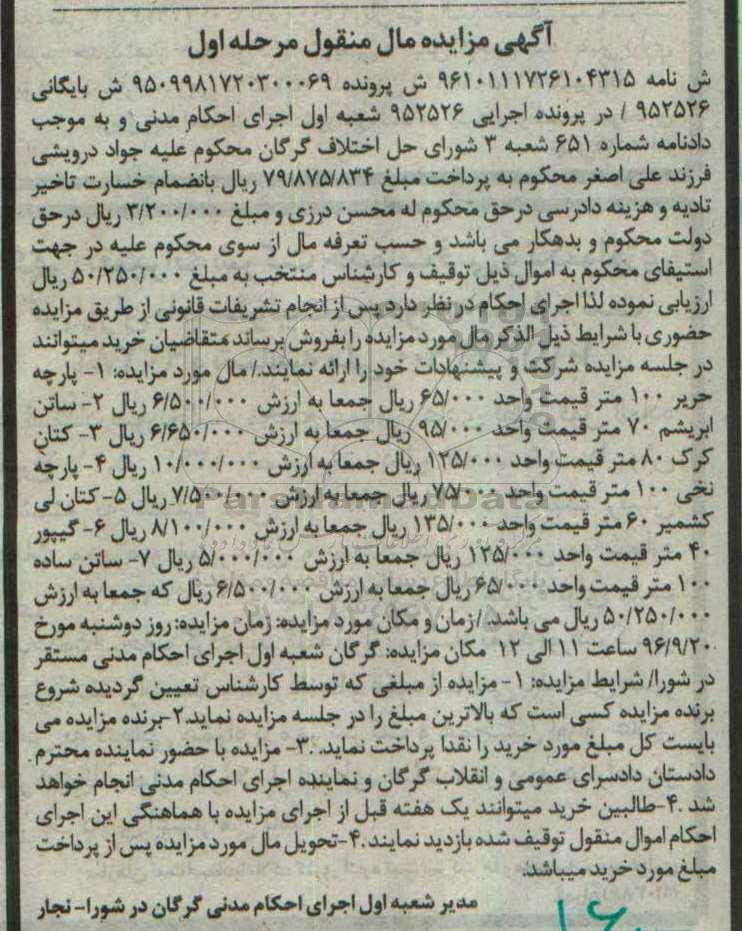 آگهی مزایده مال منقول مرحله اول
ش نامه ۹۶۱۰۱۱۱۷۲۶۱۰۴۳۱۵ ش پرونده ۹۵۰۹۹۸۱۷۲۰۳۰۰۰۶۹ ش بایگانی
۹۵۲۵۲۶ / در پرونده اجرایی ۹۵۲۵۲۶ شعبه اول اجرای احکام مدنی و به موجب
دادنامه شماره ۶۵۱ شعبه ۳ شورای حل اختلاف گرگان محکوم علیه جواد درویشی
فرزند علی اصغر محکوم به پرداخت مبلغ ۷۹/۸۷۵/۸۳۴ ریال بانضمام خسارت تاخیر
تادیه و هزینه دادرسی درحق محکوم له محسن درزی و مبلغ ۳/۲۰۰/۰۰۰ ریال درحق
دولت محکوم و بدهکار می باشد و حسب تعرفه مال از سوی محکوم علیه در جهت
استیفای محکوم به اموال ذیل توقیف و کارشناس منتخب به مبلغ ۵۰/۲۵۰/۰۰۰ ریال
ارزیابی نموده لذا اجرای احکام در نظر دارد پس از انجام تشریفات قانونی از طریق مزایده
حضوری با شرایط ذیل الذکر مال مورد مزایده را بفروش برساند متقاضیان خرید میتوانند
در جلسه مزایده شرکت و پیشنهادات خود را ارائه نمایند./ مال مورد مزایده: ۱- پارچه
حریر ۱۰۰ متر قیمت واحد ۶۵/۰۰۰ ریال جمعا به ارزش ۶/۵۰۰/۰۰۰ ریال ۲- ساتن
ابریشم ۷۰ متر قیمت واحد ۹۵/۰۰۰ ریال جمعا به ارزش ۶/۶۵۰/۰۰۰ ریال ۳- کتان
کرک ۸۰ متر قیمت واحد ۱۲۵/۰۰۰ ریال جمعا به ارزش ۱۰/۰۰۰/۰۰۰ ریال ۴- پارچه
نخی ۱۰۰ متر قیمت واحد ۷۵/۰۰۰ ریال جمعا به ارزش ۷/۵۰۰/۰۰۰ ریال ۵- کتان لی
کشمیر ۶۰ متر قیمت واحد ۱۳۵/۰۰۰ ریال جمعا به ارزش ۸/۱۰۰/۰۰۰ ریال ۶- گیپور
۴۰ متر قیمت واحد ۱۲۵/۰۰۰ ریال جمعا به ارزش ۵/۰۰۰/۰۰۰ ریال ۷- ساتن ساده
۱۰۰ متر قیمت واحد ۶۵/۰۰۰ ریال جمعا به ارزش ۶/۵۰۰/۰۰۰ ریال که جمعا به ارزش
۵۰/۲۵۰/۰۰۰ ریال می باشد. / زمان و مکان مورد مزایده: زمان مزایده: روز دوشنبه مورخ
۹۶/۹/۲۰ ساعت ۱۱ الی ۱۲ مکان مزایده: گرگان شعبه اول اجرای احکام مدنی مستقر
در شورا/ شرایط مزایده: ۱- مزایده از مبلغی که توسط کارشناس تعیین گردیده شروع
برنده مزایده کسی است که بالاترین مبلغ را در جلسه مزایده نماید.۲-برنده مزایده می
بایست کل مبلغ مورد خرید را نقدا پرداخت نماید. .۳- مزایده با حضور نماینده محترم
دادستان دادسرای عمومی و انقلاب گرگان و نماینده اجرای احکام مدنی انجام خواهد
شد .۴-طالبین خرید میتوانند یک هفته قبل از اجرای مزایده با هماهنگی این اجرای
احکام اموال منقول توقیف شده بازدید نمایند.۴-تحویل مال مورد مزایده پس از پرداخت
مبلغ مورد خرید میباشد.
مدیر شعبه اول اجرای احکام مدنی گرگان در شورا- نجار